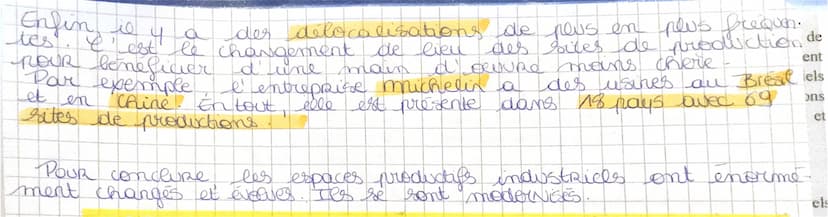 Enfin il y a des délocalisations de plus en plus fréquen-
tes. C'est le changement de lieu des sites de production
pour bénéficier d'une main d'œuvre moins chère.
Par exemple l'entreprise Michelin a des usines au Brésil
et en Chine. En tout, elle est présente dans 18 pays avec 69
sites de productions.
Pour conclure les espaces productifs industriels ont énormé-
ment changés et évolués. Ils se sont modernisés.
de
ent
els
ons
et
els